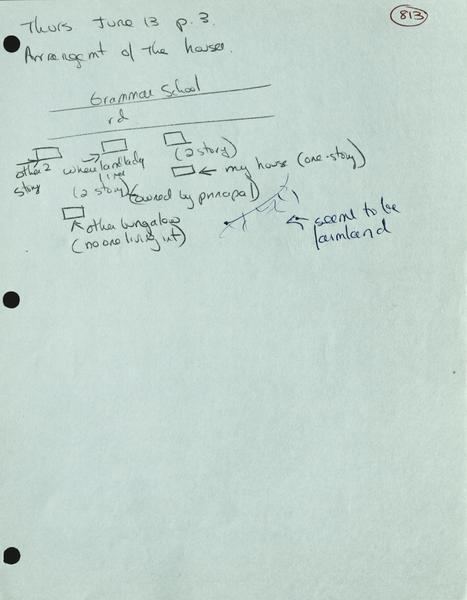 Thurs June 13 p. 3.
813
Arrangemt of the houses.
Grammar School
rd
other 2
story
where landlady
lives
(2 story)
(2 story)
← my house (one-story)
(owned by principal)
other bungalow
(no one living in it)
← seems to be
farmland